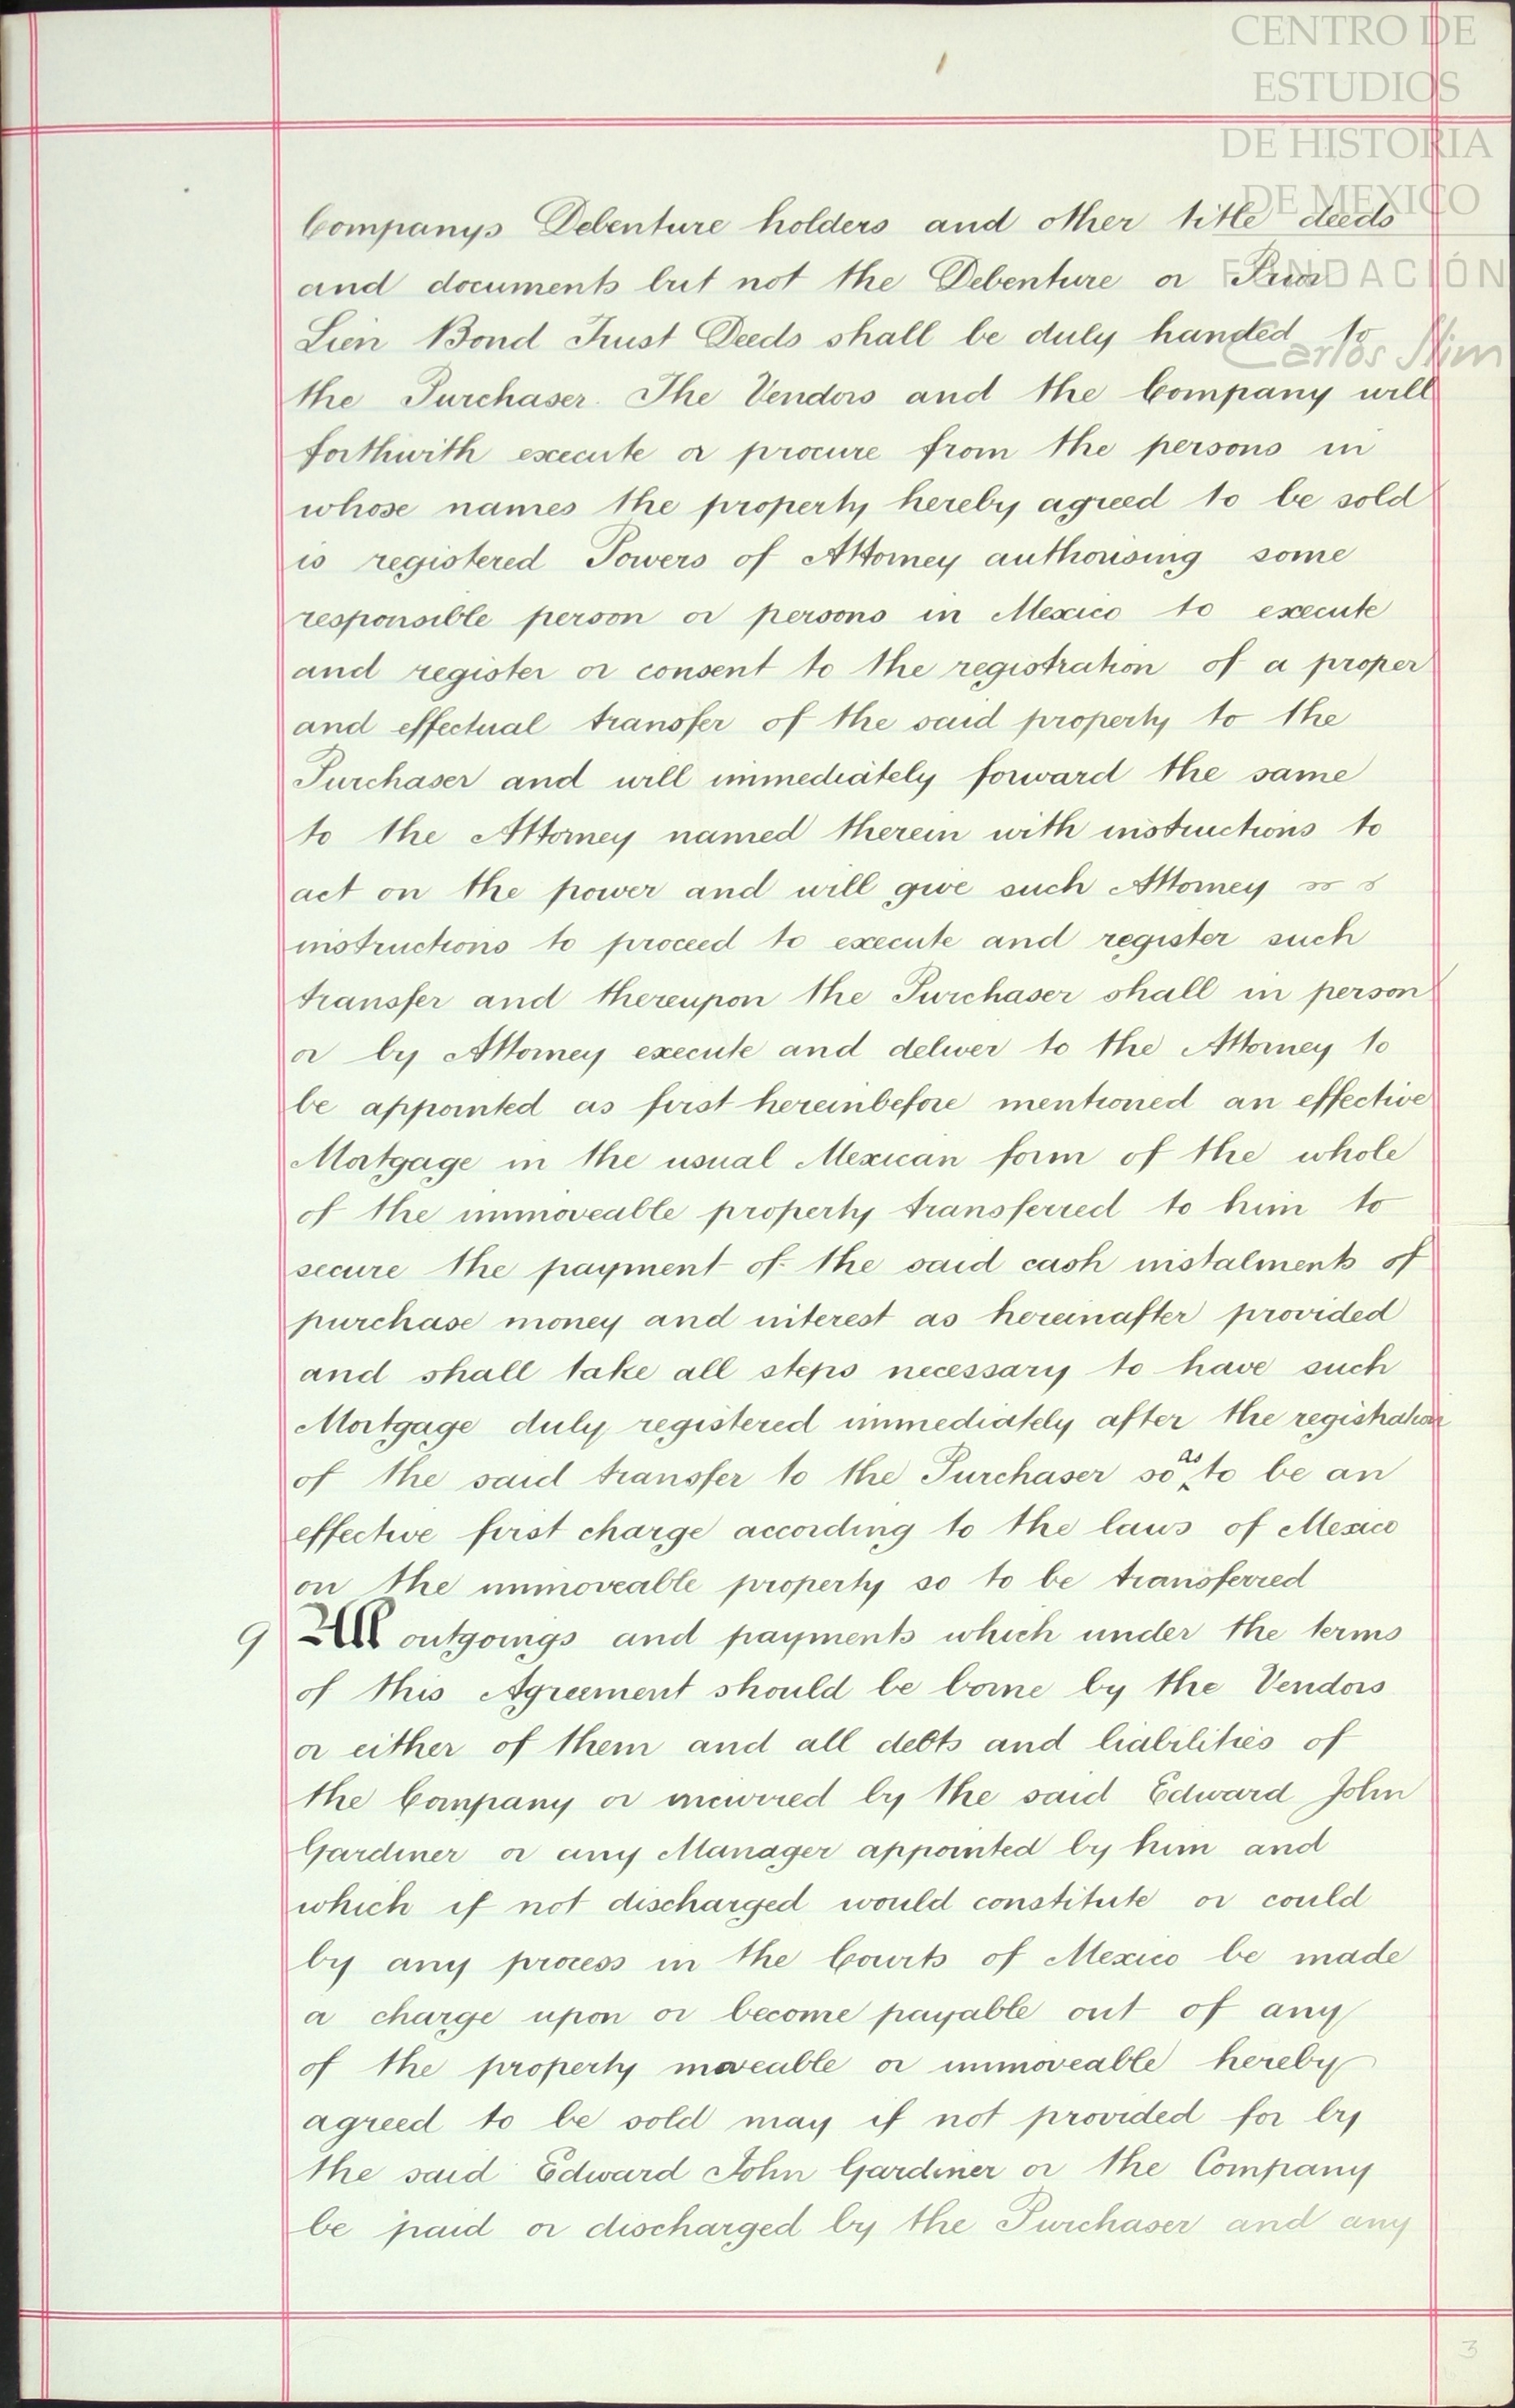 CENTRO DE
ESTUDIOS
DE HISTORIA
DE MEXICO
FUNDACIÓN
Carlos Slim
Companys Debenture holders and other title deeds
and documents but not the Debenture or Prior
Lien Bond Trust Deeds shall be duly handed to
the Purchaser. The Vendors and the Company will
forthwith execute or procure from the persons in
whose names the property hereby agreed to be sold
is registered Powers of Attorney authorising some
responsible person or persons in Mexico to execute
and register or consent to the registration of a proper
and effectual transfer of the said property to the
Purchaser and will immediately forward the same
to the Attorney named therein with instructions to
act on the power and will give such Attorney
instructions to proceed to execute and register such
transfer and thereupon the Purchaser shall in person
or by Attorney execute and deliver to the Attorney to
be appointed as first hereinbefore mentioned an effective
Mortgage in the usual Mexican form of the whole
of the immoveable property transferred to him to
secure the payment of the said cash instalments of
purchase money and interest as hereinafter provided
and shall take all steps necessary to have such
Mortgage duly registered immediately after the registration
of the said transfer to the Purchaser so as to be an
effective first charge according to the laws of Mexico
on the immoveable property so to be transferred
9 All outgoings and payments which under the terms
of this Agreement should be borne by the Vendors
or either of them and all debts and liabilities of
the Company or incurred by the said Edward John
Gardiner or any Manager appointed by him and
which if not discharged would constitute or could
by any process in the Courts of Mexico be made
a charge upon or become payable out of any
of the property moveable or immoveable hereby
agreed to be sold may if not provided for by
the said Edward John Gardiner or the Company
be paid or discharged by the Purchaser and any
3